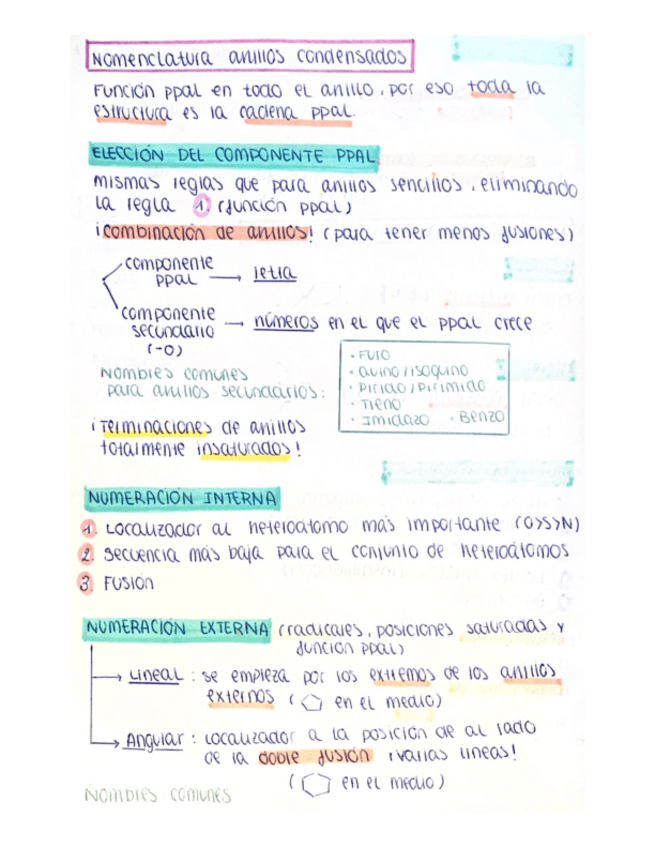 Nomenclatura anillos condensados
Función ppal en todo el anillo, por eso toda la
estructura es la cadena ppal.
ELECCIÓN DEL COMPONENTE PPAL
mismas reglas que para anillos sencillos, eliminando
la regla 1 (función ppal)
¡combinación de anillos! (para tener menos fusiones)
componente
ppal → letra
componente
secundario → números en el que el ppal crece
(-o)
Nombres comunes
para anillos secundarios:
· Furo
· quino/isoquino
· Pirido/Pirimido
· Tieno
· Imidazo · Benzo
¡Terminaciones de anillos
totalmente insaturados!
NUMERACIÓN INTERNA
1. Localizador al heteroátomo más importante (O>S>N)
2. Secuencia más baja para el conjunto de heteroátomos
3. Fusión
NUMERACIÓN EXTERNA (radicales, posiciones saturadas y
función ppal)
→ Lineal: se empieza por los extremos de los anillos
externos ( en el medio)
→ Angular: Localizador a la posición de al lado
de la doble fusión ¡varias líneas!
( en el medio)
Nombres comunes